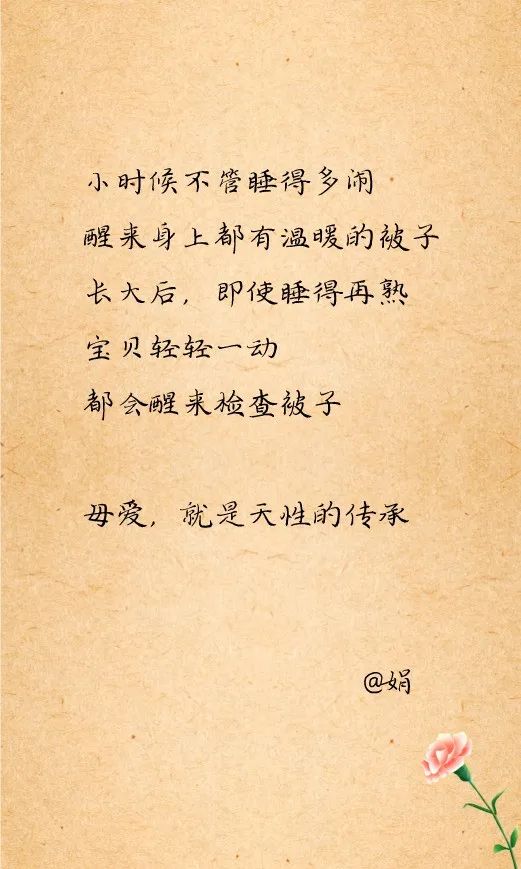 小时候不管睡得多闹
醒来身上都有温暖的被子
长大后，即使睡得再熟
宝贝轻轻一动
都会醒来检查被子
母爱，就是天性的传承
@娟